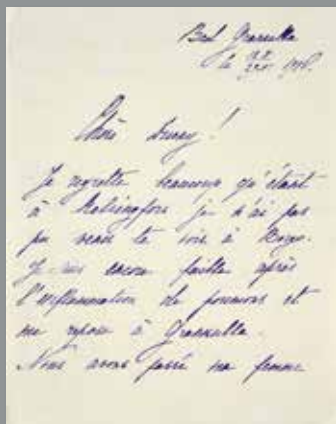 Bad Grankulla
le
Chère Dunay!
Je regrette beaucoup qu'étant
à Helsingfors je n'ai pas
pu venir te voir à Borgo.
Je suis encore faible après
l'inflammation de poumons et
me repose à Grankulla.
Nous avons passé ma femme